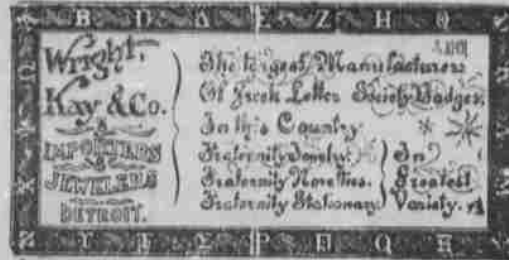 B Δ Δ E Z H Θ
Wright,
Kay & Co.
IMPORTERS
&
JEWELERS
DETROIT.
ARE
The Largest Manufacturers
Of Greek Letter Society Badges,
In this Country
Fraternity Jewelry.
Fraternity Novelties.
Fraternity Stationary.
In
Greatest
Variety.